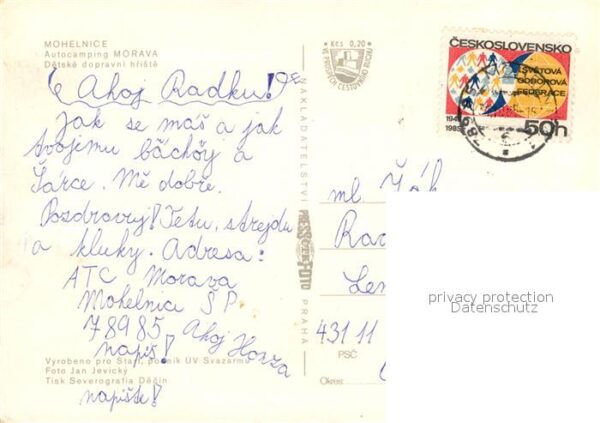 MOHELNICE
Autocamping MORAVA
Dětské dopravní hřiště
Ahoj Radku!
Jak se máš a jak
tvojemu a
Šárce. Mě dobře.
Pozdravuj! Tetu, strejdu
a kluky. Adresa:
ATC Morava
Mohelnice ŠP
78985 Ahoj Honza
napiš!
Vyrobeno pro Start, podnik ÚV Svazarmu
Foto Jan Jevický
Tisk Severografia Děčín
napište!
Kčs 0,20
VE PROSPĚCH CESTOVNÍHO RUCHU
NAKLADATELSTVÍ PRESSFOTO PRAHA
ČESKOSLOVENSKO
SVĚTOVÁ
ODBOROVÁ
FEDERACE
1945
1985
50h
ml. Žák
Rad
Len
431 11
PSČ
Okres:
privacy protection
Datenschutz